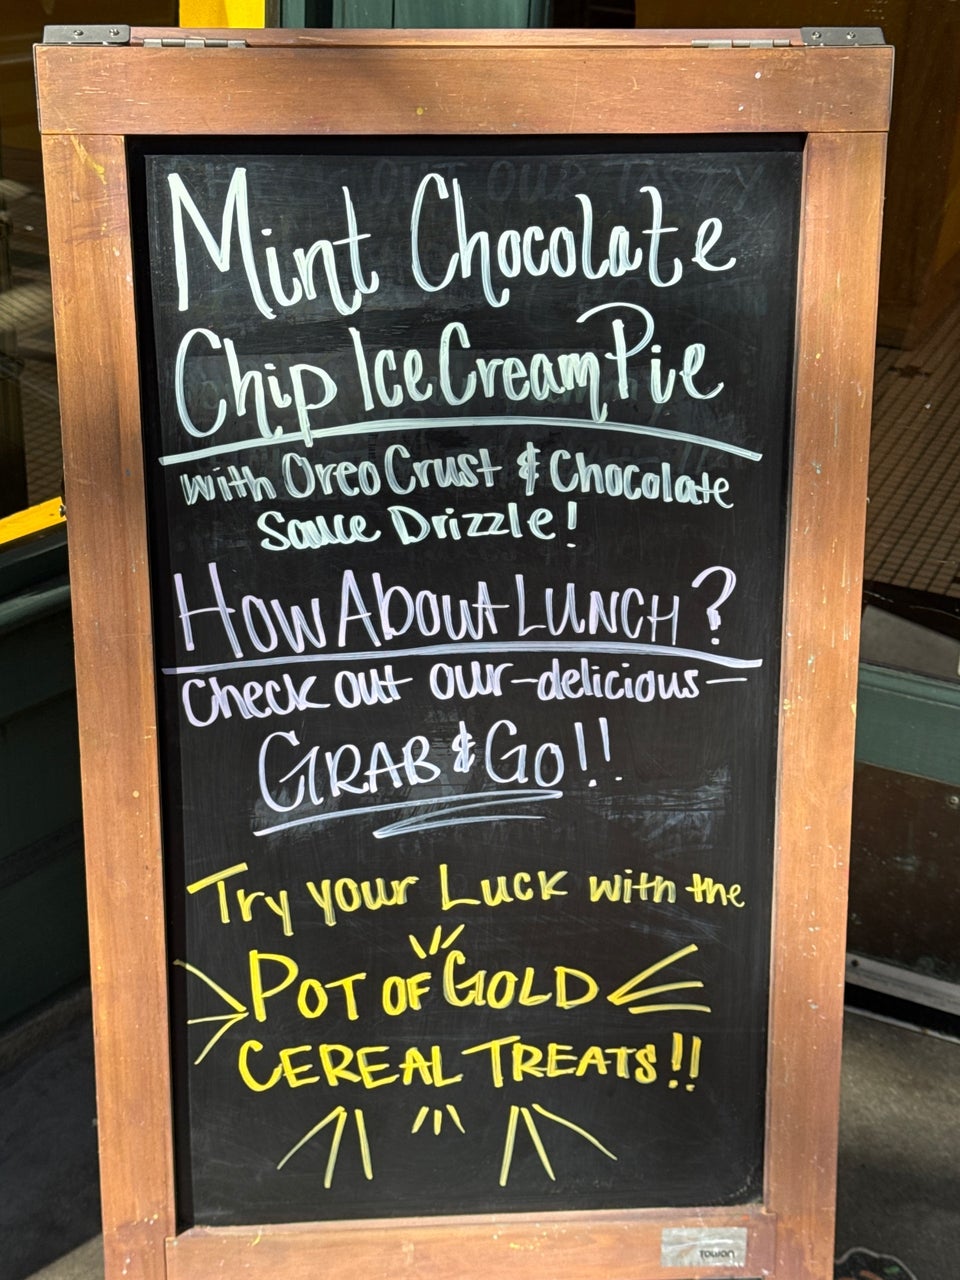 Mint Chocolate
Chip Ice Cream Pie
with Oreo Crust & Chocolate
Sauce Drizzle!
HOW ABOUT LUNCH?
Check out our -delicious-
GRAB & GO!!
Try your Luck with the
POT OF GOLD
CEREAL TREATS!!